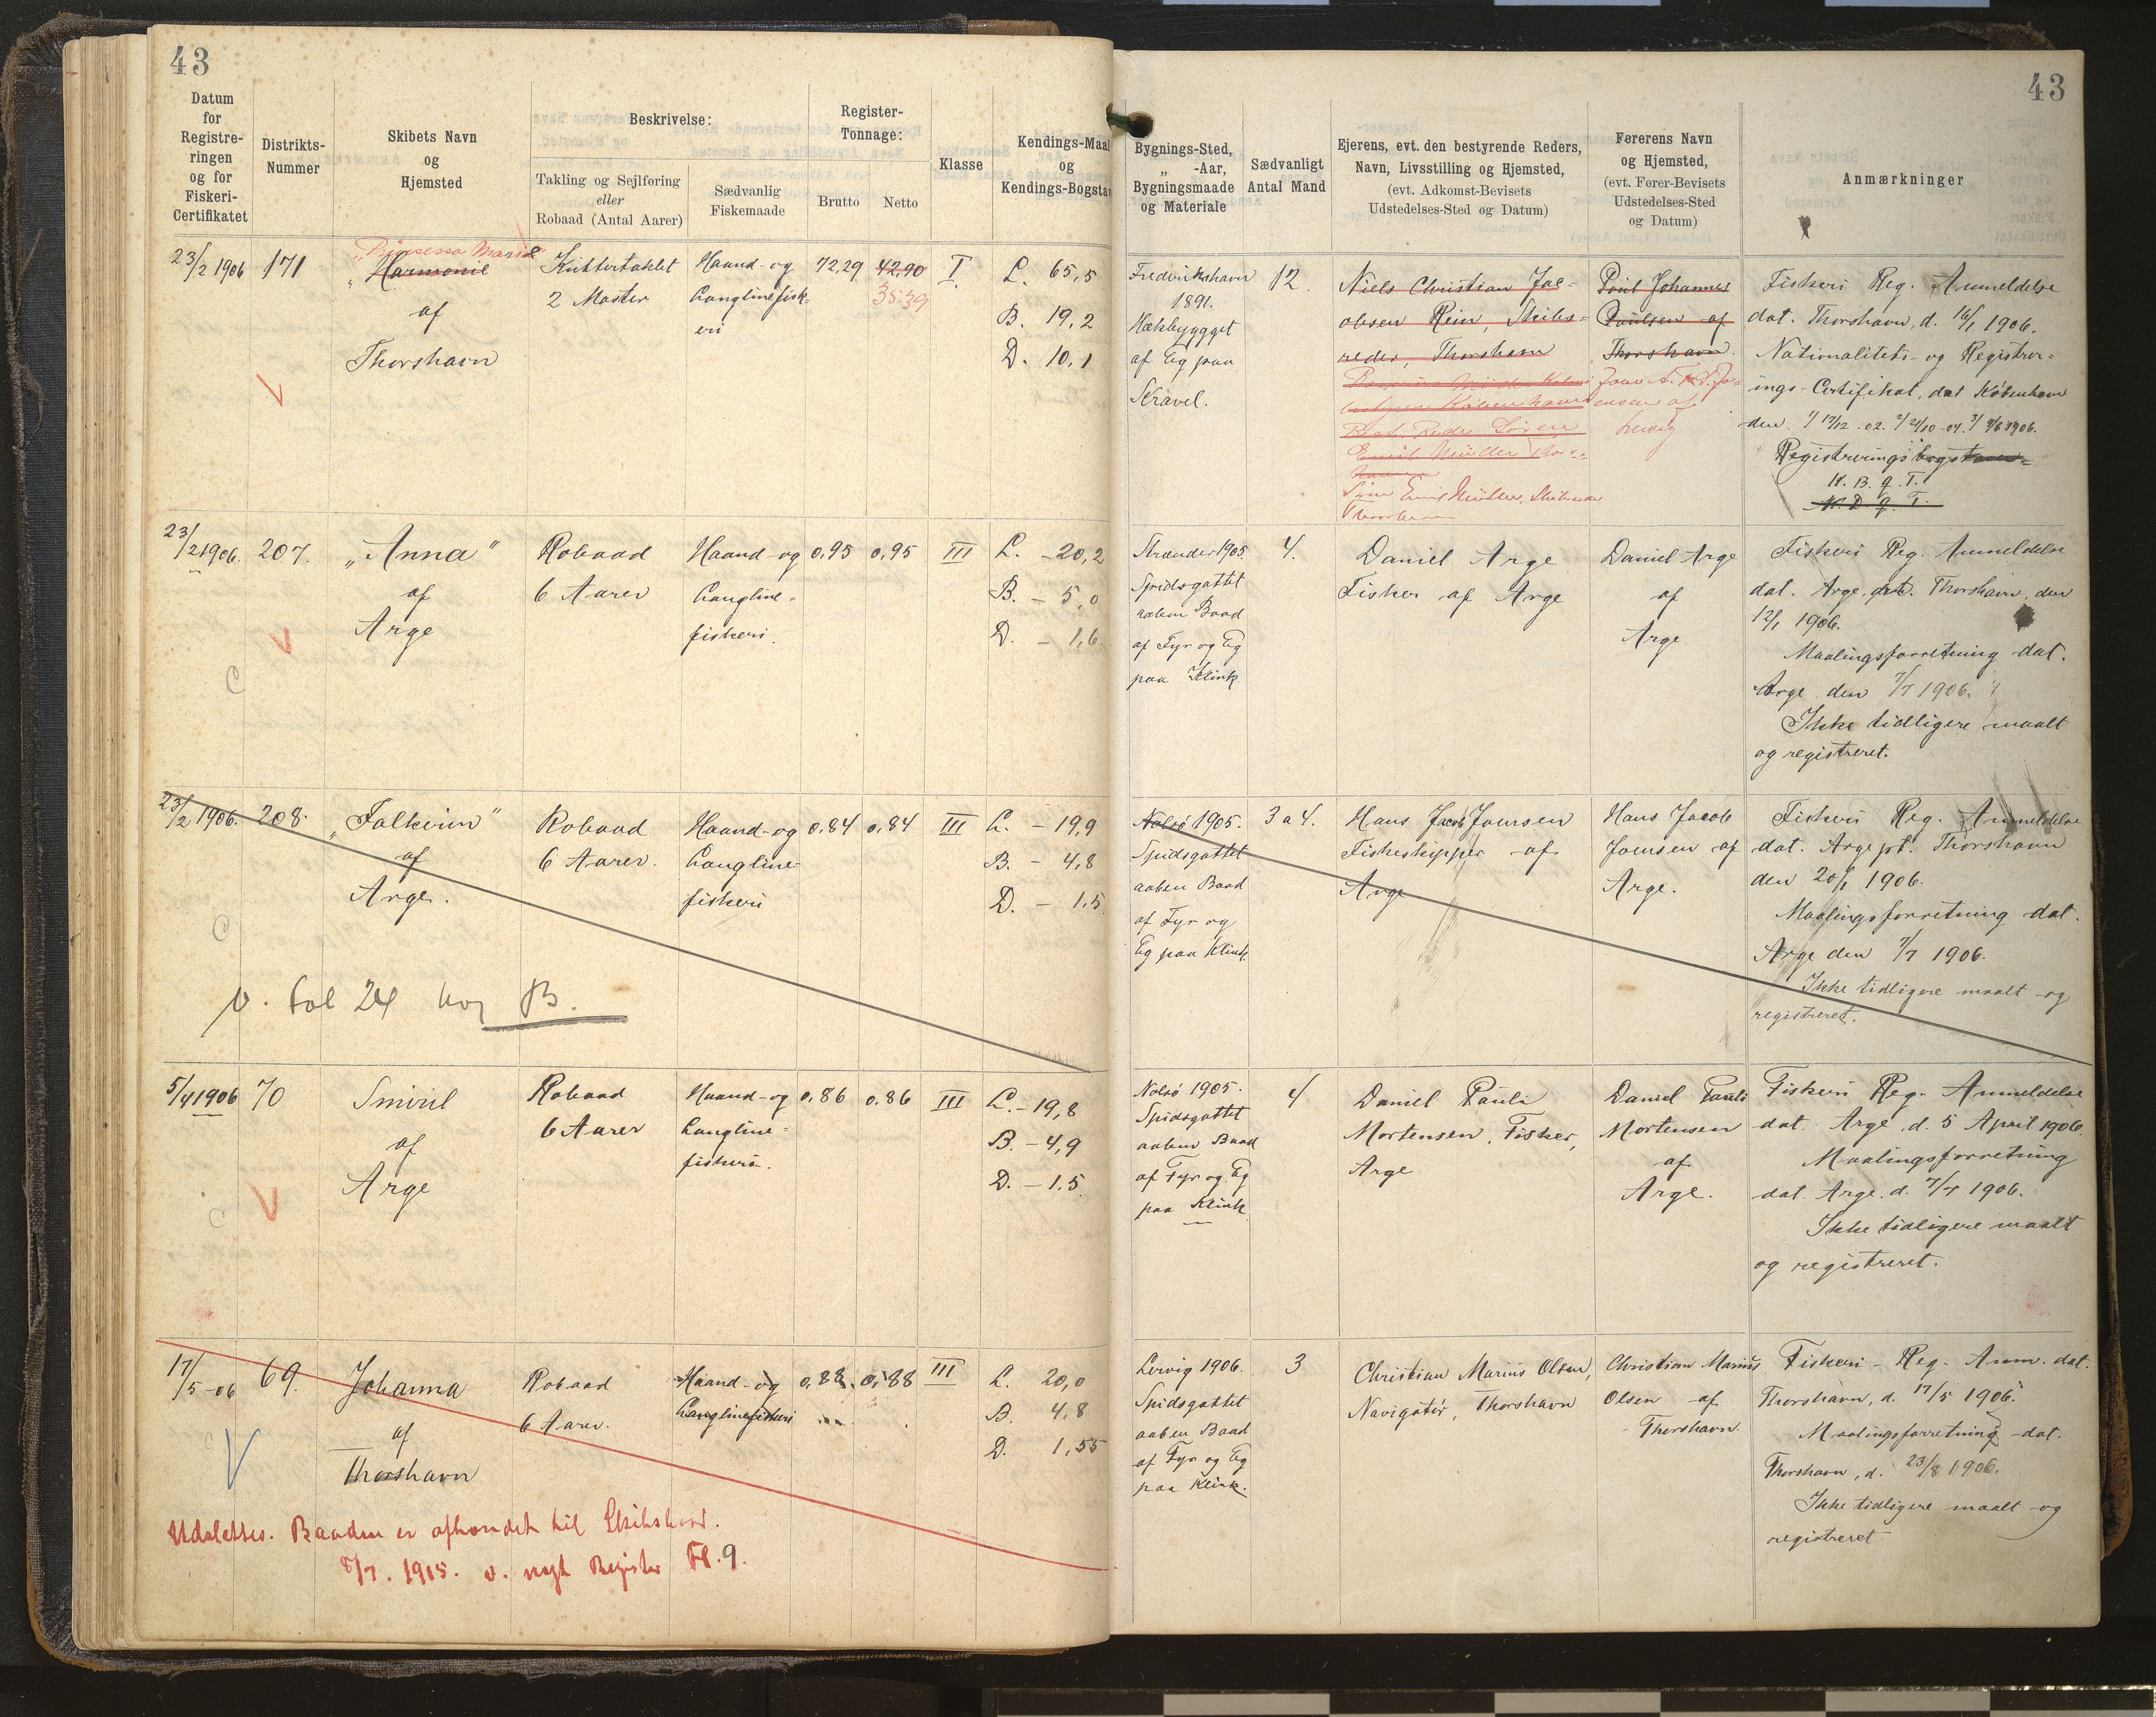 43
43
Datum
for
Registre-
ringen
og for
Fiskeri-
Certifikatet
Distrikts-
Nummer
Skibets Navn
og
Hjemsted
Beskrivelse:
Takling og Sejlføring
eller
Robaad (Antal Aarer)
Sædvanlig
Fiskemaade
Register-
Tonnage:
Brutto
Netto
Klasse
Kendings-Maal
og
Kendings-Bogstav
Bygnings-Sted,
„ -Aar,
Bygningsmaade
og Materiale
Sædvanligt
Antal Mand
Ejerens, evt. den bestyrende Reders,
Navn, Livsstilling og Hjemsted,
(evt. Adkomst-Bevisets
Udstedelses-Sted og Datum)
Førerens Navn
og Hjemsted,
(evt. Fører-Bevisets
Udstedelses-Sted
og Datum)
Anmærkninger
23/2 1906
171
„Prinsessa Marie"
„Harmonie
af
Thorshavn
Kuttertaklet
2 Master
Haand- og
Langlinefisk-
eri
72,29
42,90
35.39
I
L. 65,5
B. 19,2
D. 10,1
Fredrikshavn
1891.
Hækbygget
af Eg paa
Kravel.
12.
Niels Christian Jac-
obsen Rein, Skibs-
reder, Thorshavn
Emil Müller
Thorshavn
Poul Johannes
Poulsen af
Thorshavn.
ensen af
Lervig
Fiskeri Reg. Anmeldelse
dat. Thorshavn, d. 16/1 1906.
Nationalitets- og Registrer-
ings-Certifikat, dat København
den 1/ 17/12 - 02. 2/ 21/10 - 04. 3/ 9/6 1906.
Registreringsbogstaver
N. B. q. T.
N. D. q. T.
23/2 1906.
207.
„Anna"
af
Arge
Robaad
6 Aarer
Haand- og
Langline-
fiskeri.
0,95
0,95
III
L. - 20,2
B. - 5,0
D. - 1,6
Strænder 1905.
Spidsgattet
aaben Baad
af Fyr og Eg
paa Klink.
4.
Daniel Arge
Fisker af Arge
Daniel Arge
af
Arge
Fiskeri Reg. Anmeldelse
dat. Arge prt. Thorshavn, den
12/1 1906.
Maalingsforretning dat.
Arge den 7/7 1906.
Ikke tidligere maalt
og registreret.
C
23/2 1906.
208.
„Falkerin"
af
Arge.
Robaad
6 Aarer.
Haand- og
Langline-
fiskeri
0,84
0,84
III
L. - 19,9
B. - 4,8
D. - 1.5
Nolsö 1905.
Spidsgattet
aaben Baad
af Fyr og
Eg paa Klink.
3 a 4.
Hans Jacob Joensen
Fiskeskipper af
Arge
Hans Jacob
Joensen af
Arge.
Fiskeri Reg. Anmeldelse
dat. Arge pt. Thorshavn
den 20/1 1906.
Maalingsforretning dat.
Arge den 7/7 1906.
Ikke tidligere maalt og
registreret.
C
v. Fol 24 hos B.
5/4 1906
70
Smiril
af
Arge
Robaad
6 Aarer
Haand- og
Langline-
fiskeri.
0,86
0.86
III
L. - 19,8
B. - 4,9
D. - 1.5
Nolsö 1905.
Spidsgattet
aaben Baad
af Fyr og Eg
paa Klink
4
Daniel Pauli
Mortensen, Fisker,
Arge
Daniel Pauli
Mortensen
af
Arge.
Fiskeri Reg. Anmeldelse
dat. Arge d. 5 April 1906.
Maalingsforretning
dat. Arge. d. 7/7 1906.
Ikke tidligere maalt
og registreret.
C
17/5 - 06
69.
Johanna
af
Thorshavn
Robaad
6 Aarer.
Haand- og
Langlinefiskeri
0,88.
0,88
III
L. 20,0
B. 4,8
D. 1,55
Lervig 1906.
Spidsgattet
aaben Baad
af Fyr og Eg
paa Klink.
3
Christian Marius Olsen,
Navigatör, Thorshavn
Christian Marius
Olsen af
Thorshavn
Fiskeri- Reg. Anm. dat.
Thorshavn, d. 17/5 1906.
Maalingsforretning dat.
Thorshavn, d. 23/8 1906.
Ikke tidligere maalt og
registreret
Udslettes. Baaden er afhændet til
8/7. 1915. v. nyt Register Fl. 9.